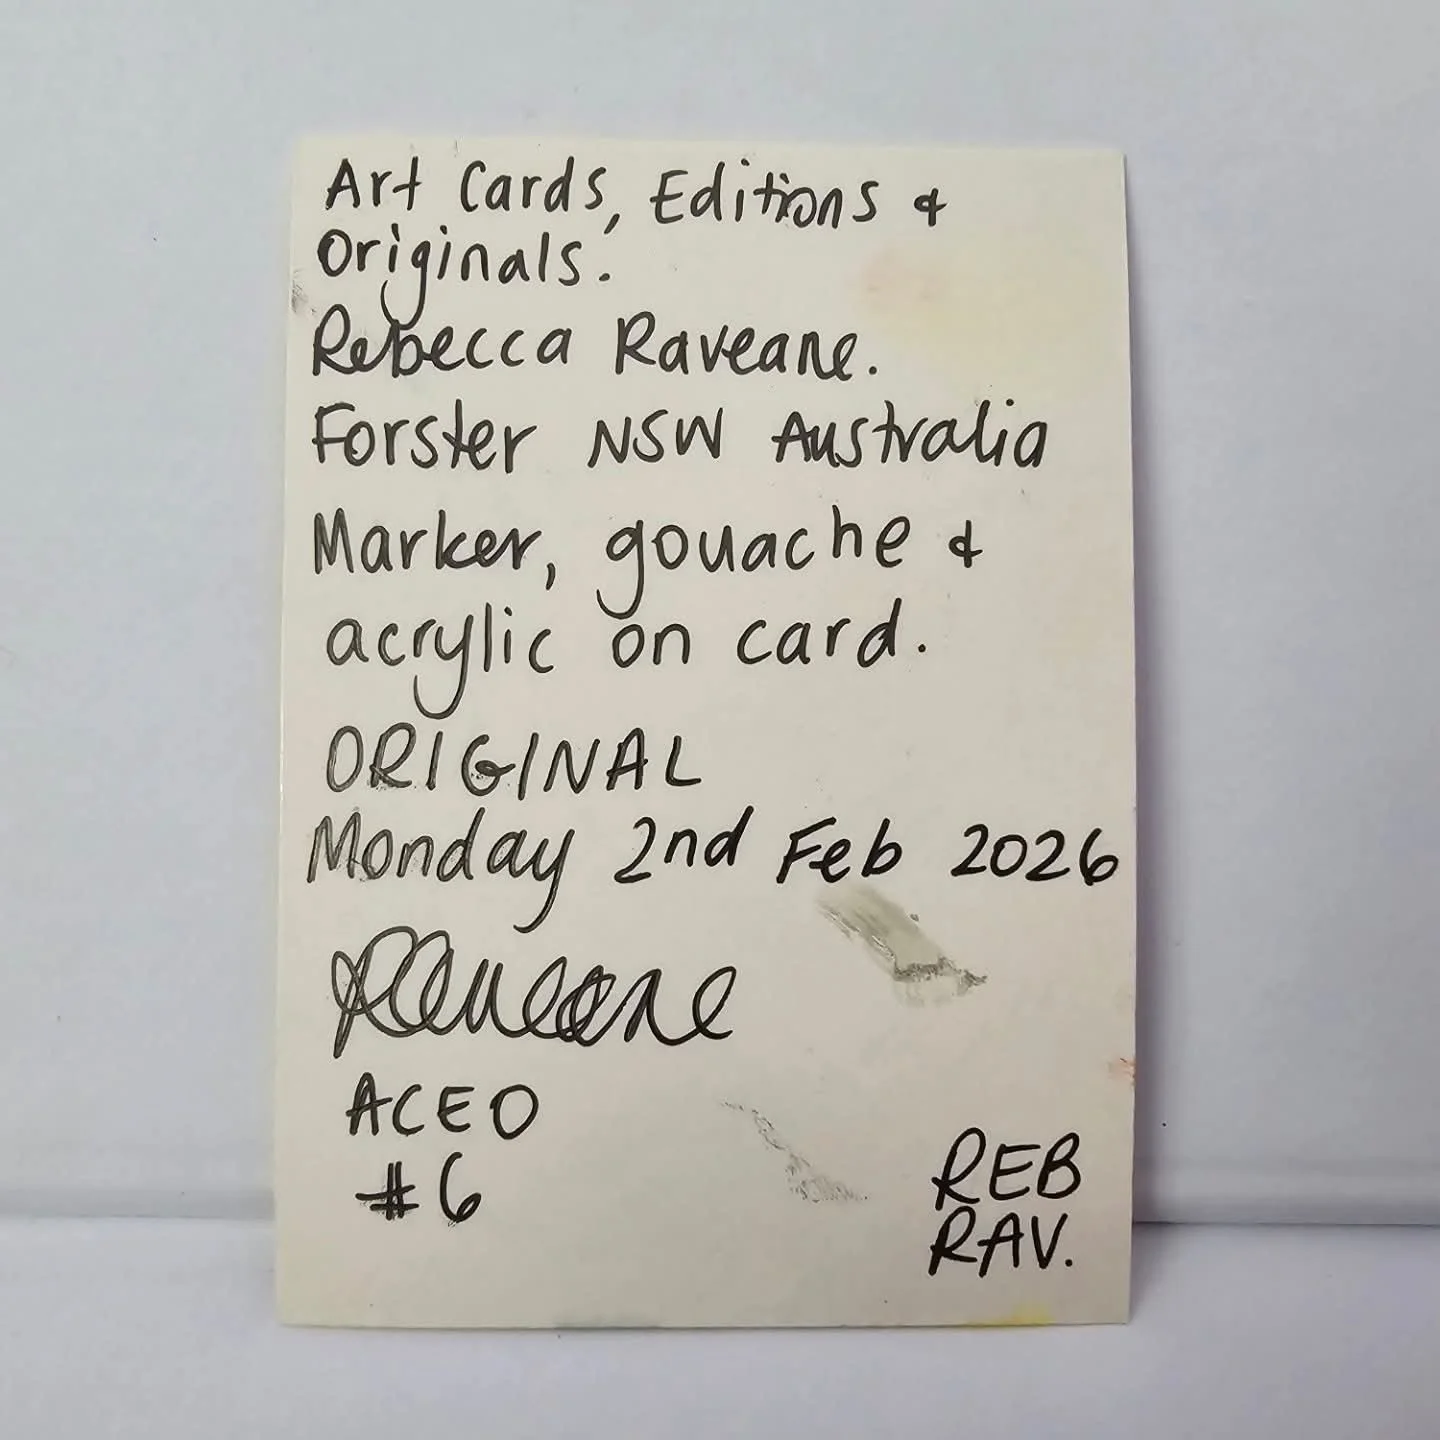 Art Cards, Editions &
Originals.
Rebecca Raveane.
Forster NSW Australia
Marker, gouache &
acrylic on card.
ORIGINAL
Monday 2nd Feb 2026
Raveane
ACEO
#6
REB
RAV.